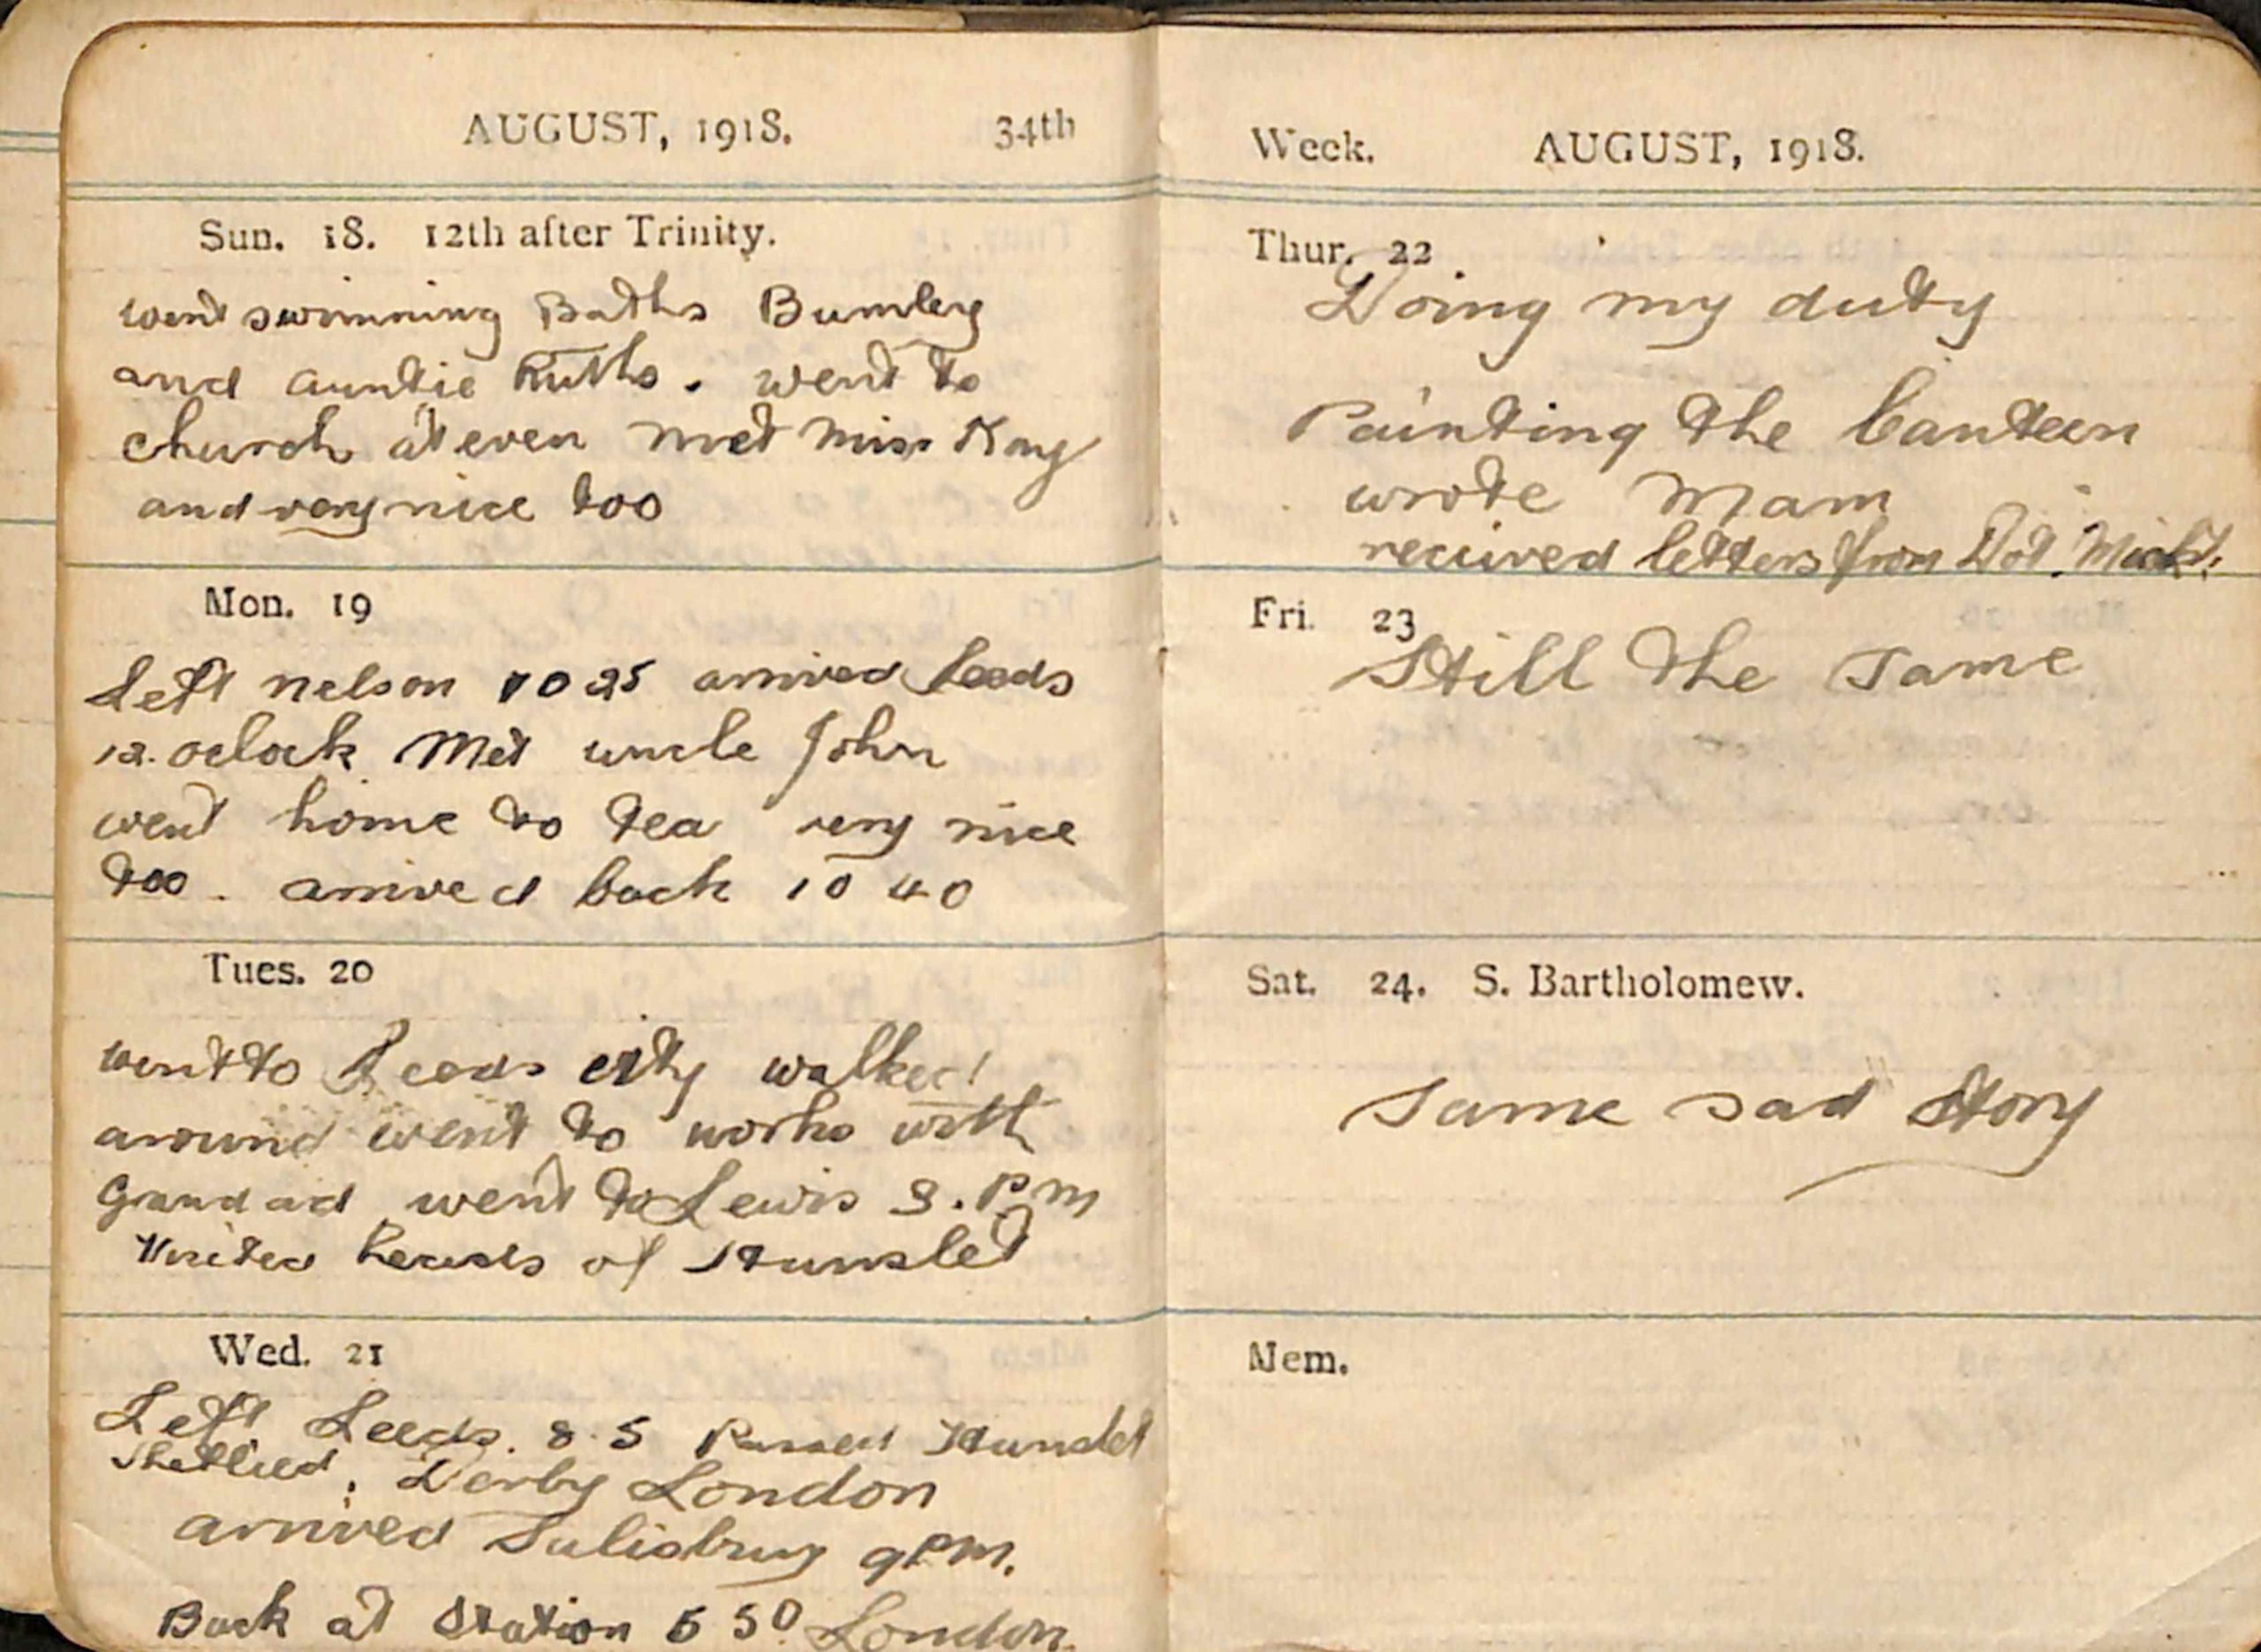 AUGUST, 1918. 34th
Sun. 18. 12th after Trinity.
went swimming Baths Burnley
and auntie Ruths. went to
church at even met miss Kay
and very nice too
Mon. 19
Left nelson 10 25 arrived Leeds
12. oclock Met uncle John
went home to tea very nice
too. arrived back 10 40
Tues. 20
went to Leeds city walked
around went to works with
Grandad went to Lewis 8. P m
Visited of Hunslet
Wed. 21
Left Leeds. 8.5 Passed Hunslet
Derby London
arrived Salisbury 9 P m.
Back at Station 5 50 London.
Week. AUGUST, 1918.
Thur. 22
Doing my duty
Painting the Canteen
wrote Mam
received letters from Dot.
Fri. 23
Still the same
Sat. 24. S. Bartholomew.
Same sad story
Mem.